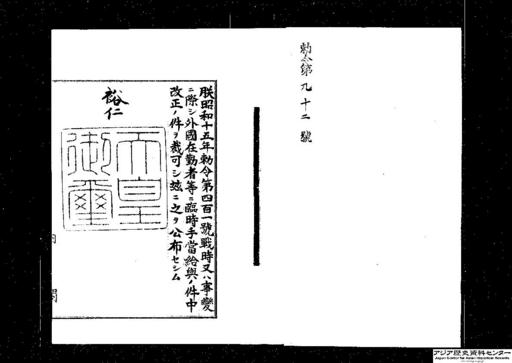 勅令第九十二號
朕昭和十五年勅令第四百一號戰時又ハ事變
ニ際シ外國在勤者等ニ臨時手當給與ノ件中
改正ノ件ヲ裁可シ玆ニ之ヲ公布セシム
裕仁
天皇
御璽
内
閣
アジア歴史資料センター
Japan Center for Asian Historical Records